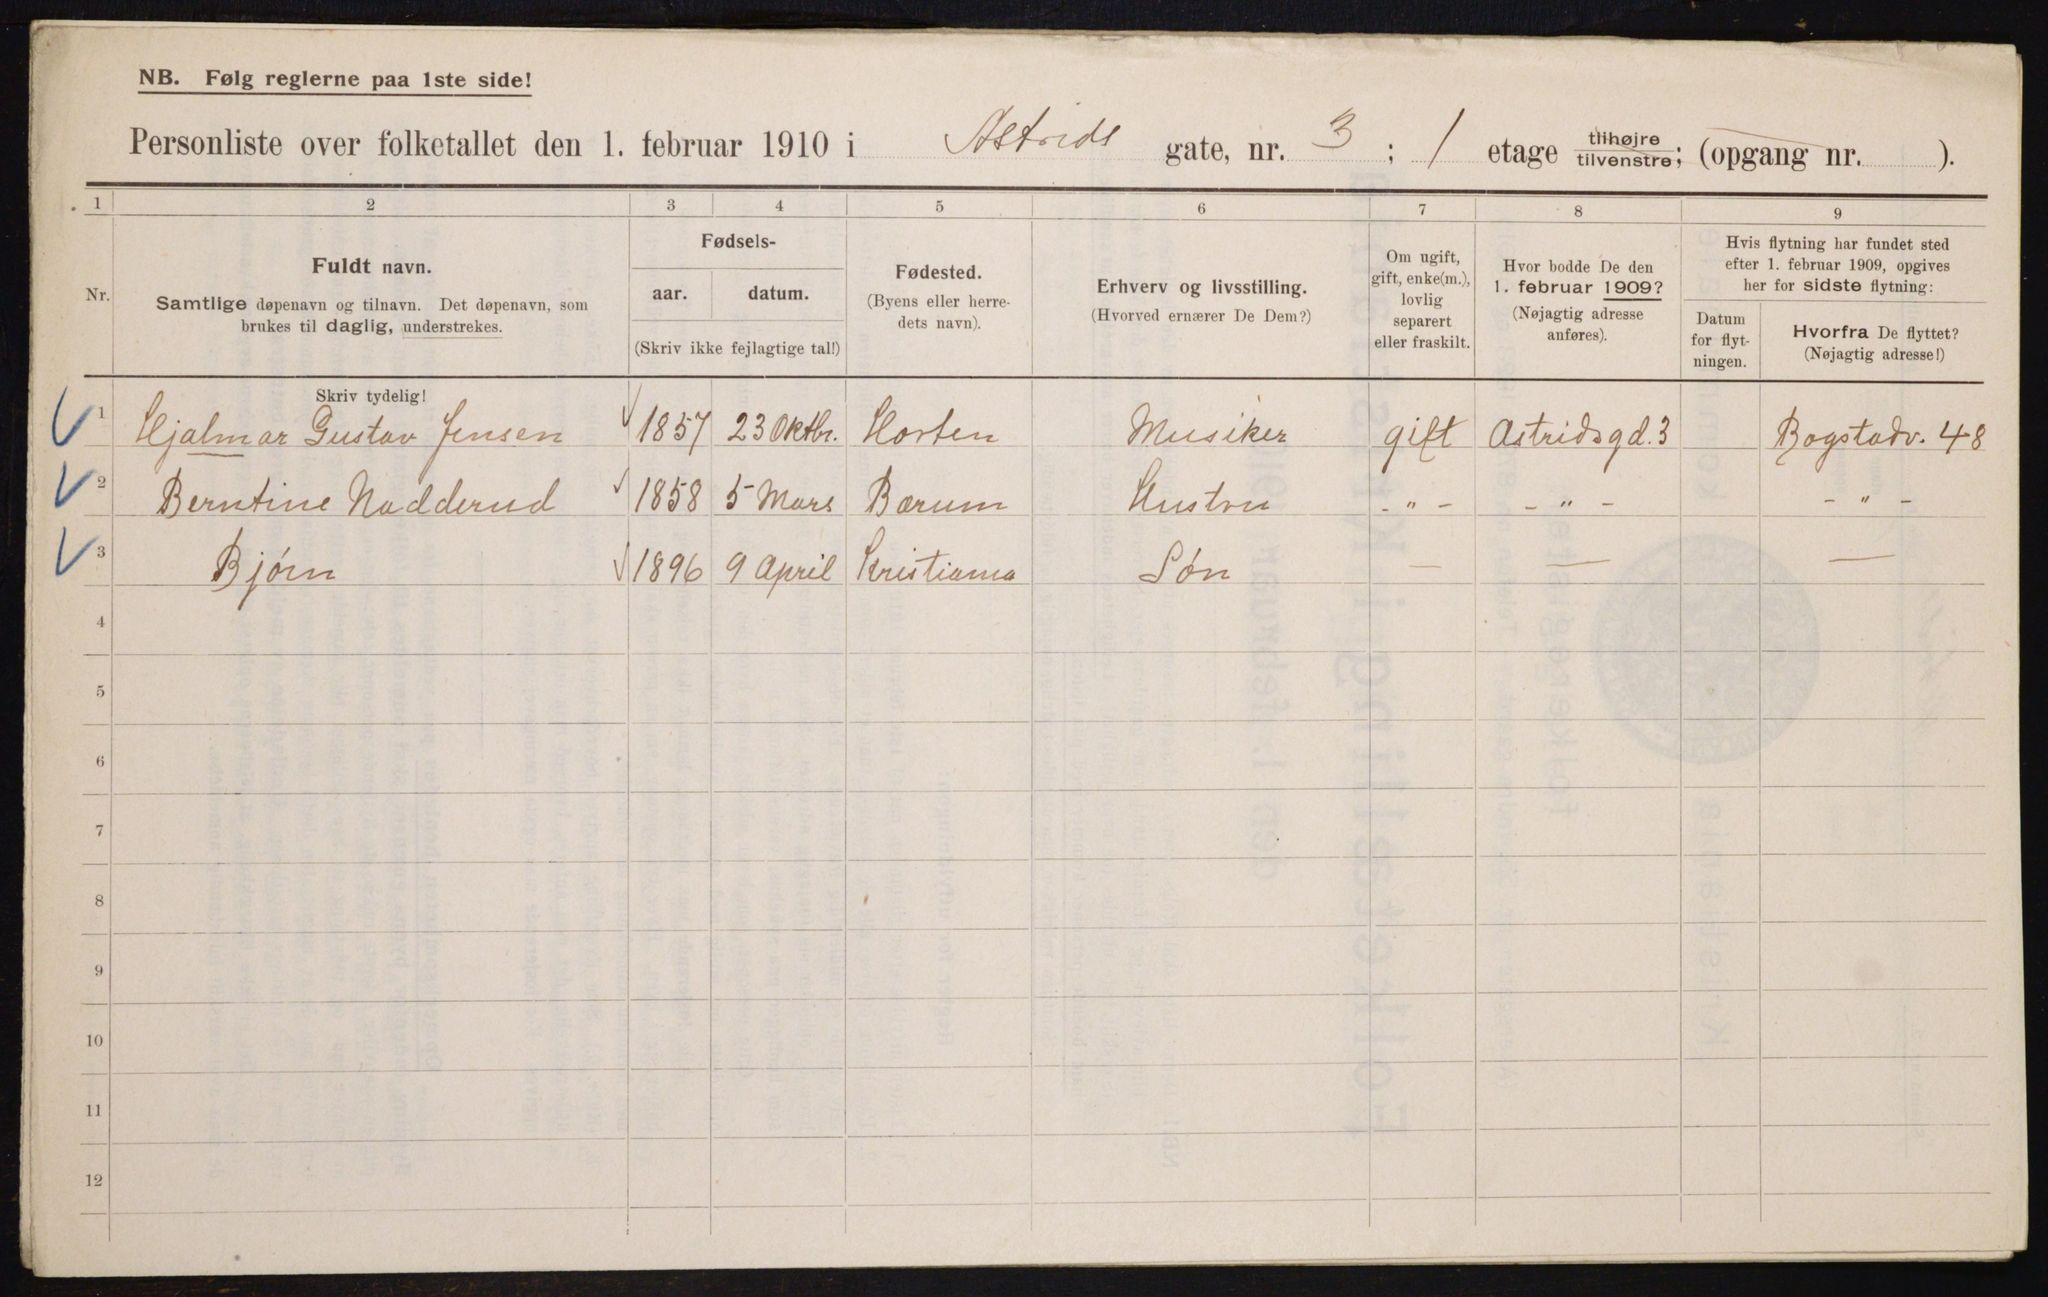 NB. Følg reglerne paa 1ste side!
Personliste over folketallet den 1. februar 1910 i Astrids gate, nr. 3 ; 1 etage tilhøjre tilvenstre; (opgang nr. ).
1 2 3 4 5 6 7 8 9
Nr.
Fuldt navn.
Samtlige døpenavn og tilnavn. Det døpenavn, som
brukes til daglig, understrekes.
Skriv tydelig!
Fødsels-
aar. datum.
(Skriv ikke fejlagtige tal!)
Fødested.
(Byens eller herre-
dets navn).
Erhverv og livsstilling.
(Hvorved ernærer De Dem?)
Om ugift,
gift, enke(m.),
lovlig
separert
eller fraskilt.
Hvor bodde De den
1. februar 1909?
(Nøjagtig adresse
anføres).
Hvis flytning har fundet sted
efter 1. februar 1909, opgives
her for sidste flytning:
Datum
for flyt-
ningen.
Hvorfra De flyttet?
(Nøjagtig adresse!)
1 Hjalmar Gustav Jensen 1857 23 Oktbr. Horten Musiker gift Astridsgd. 3 Bogstadv. 48
2 Berntine Nadderud 1858 5 Mars Bærum Hustru - " - - " - - " -
3 Bjørn 1896 9 April Kristiania Søn — — —
4
5
6
7
8
9
10
11
12